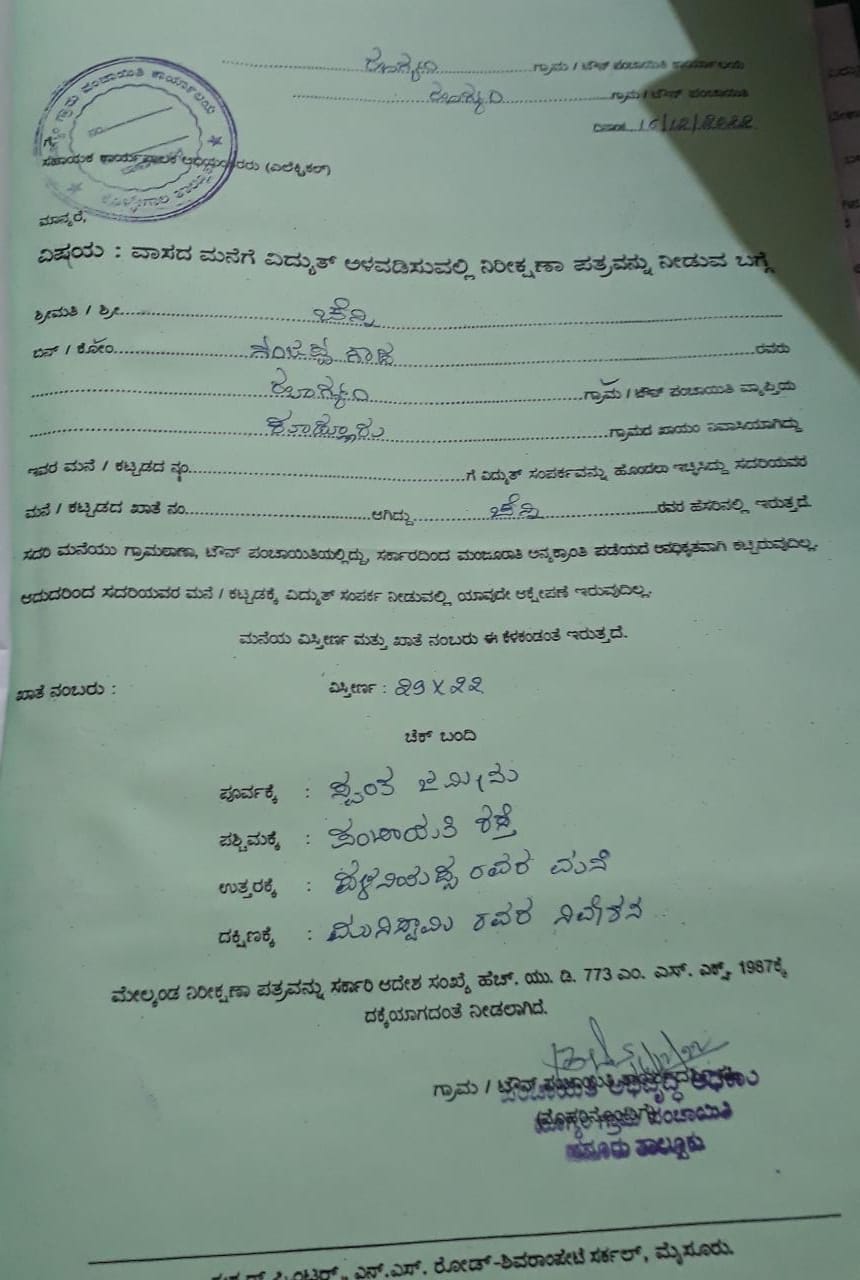 ಗ್ರಾಮ / ಟೌನ್ ಪಂಚಾಯಿತಿ ಕಾರ್ಯಾಲಯ
ಗ್ರಾಮ / ಟೌನ್ ಪಂಚಾಯಿತಿ
ದಿನಾಂಕ 16/12/2022
ಗ್ರಾಮ ಪಂಚಾಯಿತಿ ಕಾರ್ಯಾಲಯ
ಕೊಳ್ಳೇಗಾಲ ತಾಲ್ಲೂಕು
ಸಹಾಯಕ ಕಾರ್ಯಪಾಲಕ ಅಭಿಯಂತರರು (ಎಲೆಕ್ಟ್ರಿಕಲ್)
ಮಾನ್ಯರೆ,
ವಿಷಯ : ವಾಸದ ಮನೆಗೆ ವಿದ್ಯುತ್ ಅಳವಡಿಸುವಲ್ಲಿ ನಿರೀಕ್ಷಣಾ ಪತ್ರವನ್ನು ನೀಡುವ ಬಗ್ಗೆ
ಶ್ರೀಮತಿ / ಶ್ರೀ
ಬಿನ್ / ಕೋಂ ರವರು
ಗ್ರಾಮ / ಟೌನ್ ಪಂಚಾಯಿತಿ ವ್ಯಾಪ್ತಿಯ
ಗ್ರಾಮದ ಖಾಯಂ ನಿವಾಸಿಯಾಗಿದ್ದು
ಇವರ ಮನೆ / ಕಟ್ಟಡದ ನಂ ಗೆ ವಿದ್ಯುತ್ ಸಂಪರ್ಕವನ್ನು ಹೊಂದಲು ಇಚ್ಛಿಸಿದ್ದು ಸದರಿಯವರ
ಮನೆ / ಕಟ್ಟಡದ ಖಾತೆ ನಂ. ಆಗಿದ್ದು ರವರ ಹೆಸರಿನಲ್ಲಿ ಇರುತ್ತದೆ.
ಸದರಿ ಮನೆಯು ಗ್ರಾಮಠಾಣಾ, ಟೌನ್ ಪಂಚಾಯಿತಿಯಲ್ಲಿದ್ದು, ಸರ್ಕಾರದಿಂದ ಮಂಜೂರಾತಿ ಅನ್ಯಕ್ರಾಂತಿ ಪಡೆಯದೆ ಅನಧಿಕೃತವಾಗಿ ಕಟ್ಟಿರುವುದಿಲ್ಲ.
ಆದುದರಿಂದ ಸದರಿಯವರ ಮನೆ / ಕಟ್ಟಡಕ್ಕೆ ವಿದ್ಯುತ್ ಸಂಪರ್ಕ ನೀಡುವಲ್ಲಿ ಯಾವುದೇ ಆಕ್ಷೇಪಣೆ ಇರುವುದಿಲ್ಲ.
ಮನೆಯ ವಿಸ್ತೀರ್ಣ ಮತ್ತು ಖಾತೆ ನಂಬರು ಈ ಕೆಳಕಂಡಂತೆ ಇರುತ್ತದೆ.
ಖಾತೆ ನಂಬರು : ವಿಸ್ತೀರ್ಣ : 29 X 22
ಚೆಕ್ ಬಂದಿ
ಪೂರ್ವಕ್ಕೆ : ಸ್ವಂತ ಜಮೀನು
ಪಶ್ಚಿಮಕ್ಕೆ : ಪಂಚಾಯಿತಿ ರಸ್ತೆ
ಉತ್ತರಕ್ಕೆ : ರವರ ಮನೆ
ದಕ್ಷಿಣಕ್ಕೆ : ಮುನಿಸ್ವಾಮಿ ರವರ ನಿವೇಶನ
ಮೇಲ್ಕಂಡ ನಿರೀಕ್ಷಣಾ ಪತ್ರವನ್ನು ಸರ್ಕಾರಿ ಆದೇಶ ಸಂಖ್ಯೆ ಹೆಚ್. ಯು. ಡಿ. 773 ಎಂ. ಎಸ್. ಎಕ್ಸ್. 1987ಕ್ಕೆ
ದಕ್ಕೆಯಾಗದಂತೆ ನೀಡಲಾಗಿದೆ.
ಗ್ರಾಮ / ಟೌನ್
ಪಂಚಾಯಿತಿ ಅಭಿವೃದ್ಧಿ ಅಧಿಕಾರಿ
ಪಂಚಾಯಿತಿ
ಹನೂರು ತಾಲ್ಲೂಕು
ಎನ್.ಎಸ್. ರೋಡ್-ಶಿವರಾಂಪೇಟೆ ಸರ್ಕಲ್, ಮೈಸೂರು.